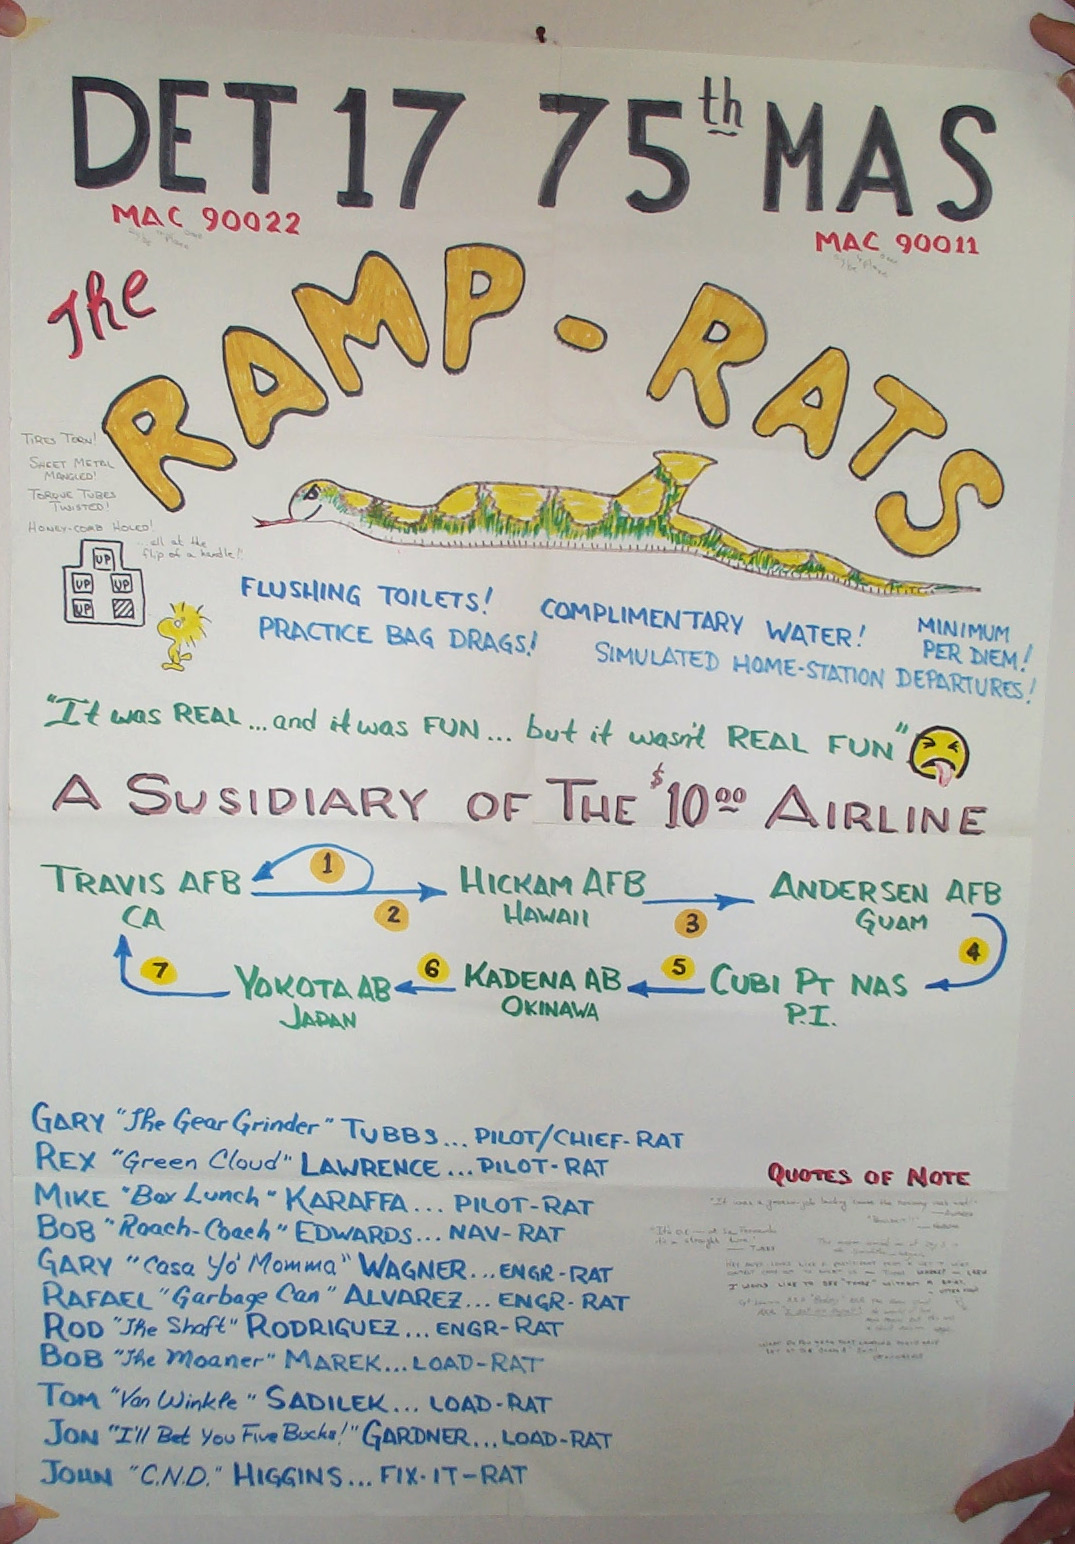 DET 17 75th MAS
MAC 90022
MAC 90011
The
RAMP - RATS
TIRES TORN!
SHEET METAL
MANGLED!
TORQUE TUBES
TWISTED!
HONEY-COMB HOLED!
...all at the
flip of a handle!"
UP
UP UP
UP
FLUSHING TOILETS!
COMPLIMENTARY WATER!
MINIMUM
PER DIEM!
PRACTICE BAG DRAGS!
SIMULATED HOME-STATION DEPARTURES!
"It was REAL...and it was FUN... but it wasn't REAL FUN"
A SUSIDIARY OF THE $10 00 AIRLINE
TRAVIS AFB 1 HICKAM AFB ANDERSEN AFB
CA 2 HAWAII 3 GUAM
4
7 YOKOTA AB 6 KADENA AB 5 CUBI PT NAS
JAPAN OKINAWA P.I.
GARY "The Gear Grinder" TUBBS... PILOT/CHIEF-RAT
REX "Green Cloud" LAWRENCE...PILOT-RAT
MIKE "Box Lunch" KARAFFA... PILOT-RAT
BOB "Roach-Coach" EDWARDS... NAV-RAT
GARY "Casa Yo' Momma" WAGNER...ENGR-RAT
RAFAEL "Garbage Can" ALVAREZ... ENGR-RAT
ROD "The Shaft" RODRIGUEZ...ENGR-RAT
BOB "The Moaner" MAREK...LOAD-RAT
TOM "Van Winkle" SADILEK... LOAD-RAT
JON "I'll Bet You Five Bucks!" GARDNER...LOAD-RAT
JOHN "C.N.D." HIGGINS... FIX-IT-RAT
QUOTES OF NOTE